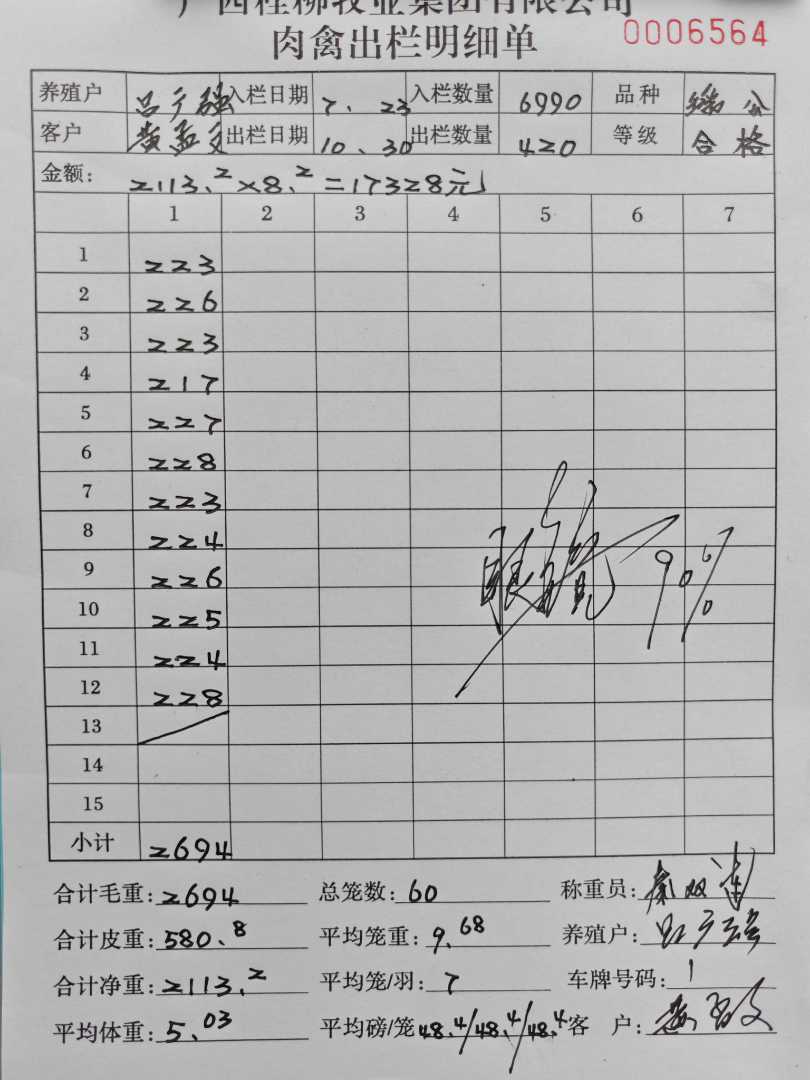 广西桂柳牧业集团有限公司
肉禽出栏明细单 0006564
养殖户 吕广强 入栏日期 7.23 入栏数量 6990 品种
客户 出栏日期 10.30 出栏数量 420 等级 合格
金额: 2113.2×8.2=17328元
1 2 3 4 5 6 7
1 223
2 226
3 223
4 217
5 227
6 228
7 223
8 224
9 226
10 225
11 224
12 228
13
14
15
90%
小计 2694
合计毛重: 2694 总笼数: 60 称重员:
合计皮重: 580.8 平均笼重: 9.68 养殖户: 吕广强
合计净重: 2113.2 平均笼/羽: 7 车牌号码: 1
平均体重: 5.03 平均磅/笼 48.4/48.4/48.4 客 户: